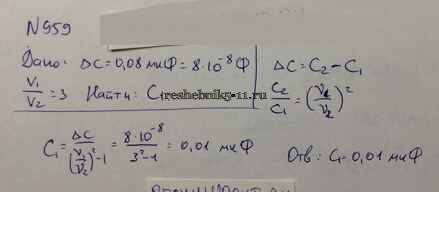 N959
Дано: ΔC=0,08 мкФ=8·10⁻⁸Ф
ΔC=C₂-C₁
V₁/V₂=3 Найти: C₁
reshebnik5-11.ru
C₂/C₁=(V₁/V₂)²
C₁=ΔC/((V₁/V₂)²-1)=8·10⁻⁸/(3²-1)=0,01 мкФ
Отв: C₁-0,01 мкФ